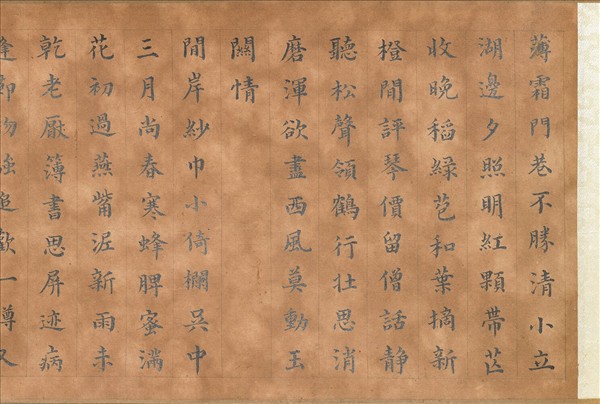 薄霜門巷不勝清小立
湖邊夕照明紅顆帶芒
收晚稻緑苞和葉摘新
橙閒評琴價留僧話静
聽松聲領鶴行壯思消
磨渾欲盡西風莫動玉
關情
閒岸紗巾小倚欄吳中
三月尚春寒蜂脾蜜滿
花初過燕觜泥新雨未
乾老厭簿書思屏迹病
逢節物強追歡一樽又